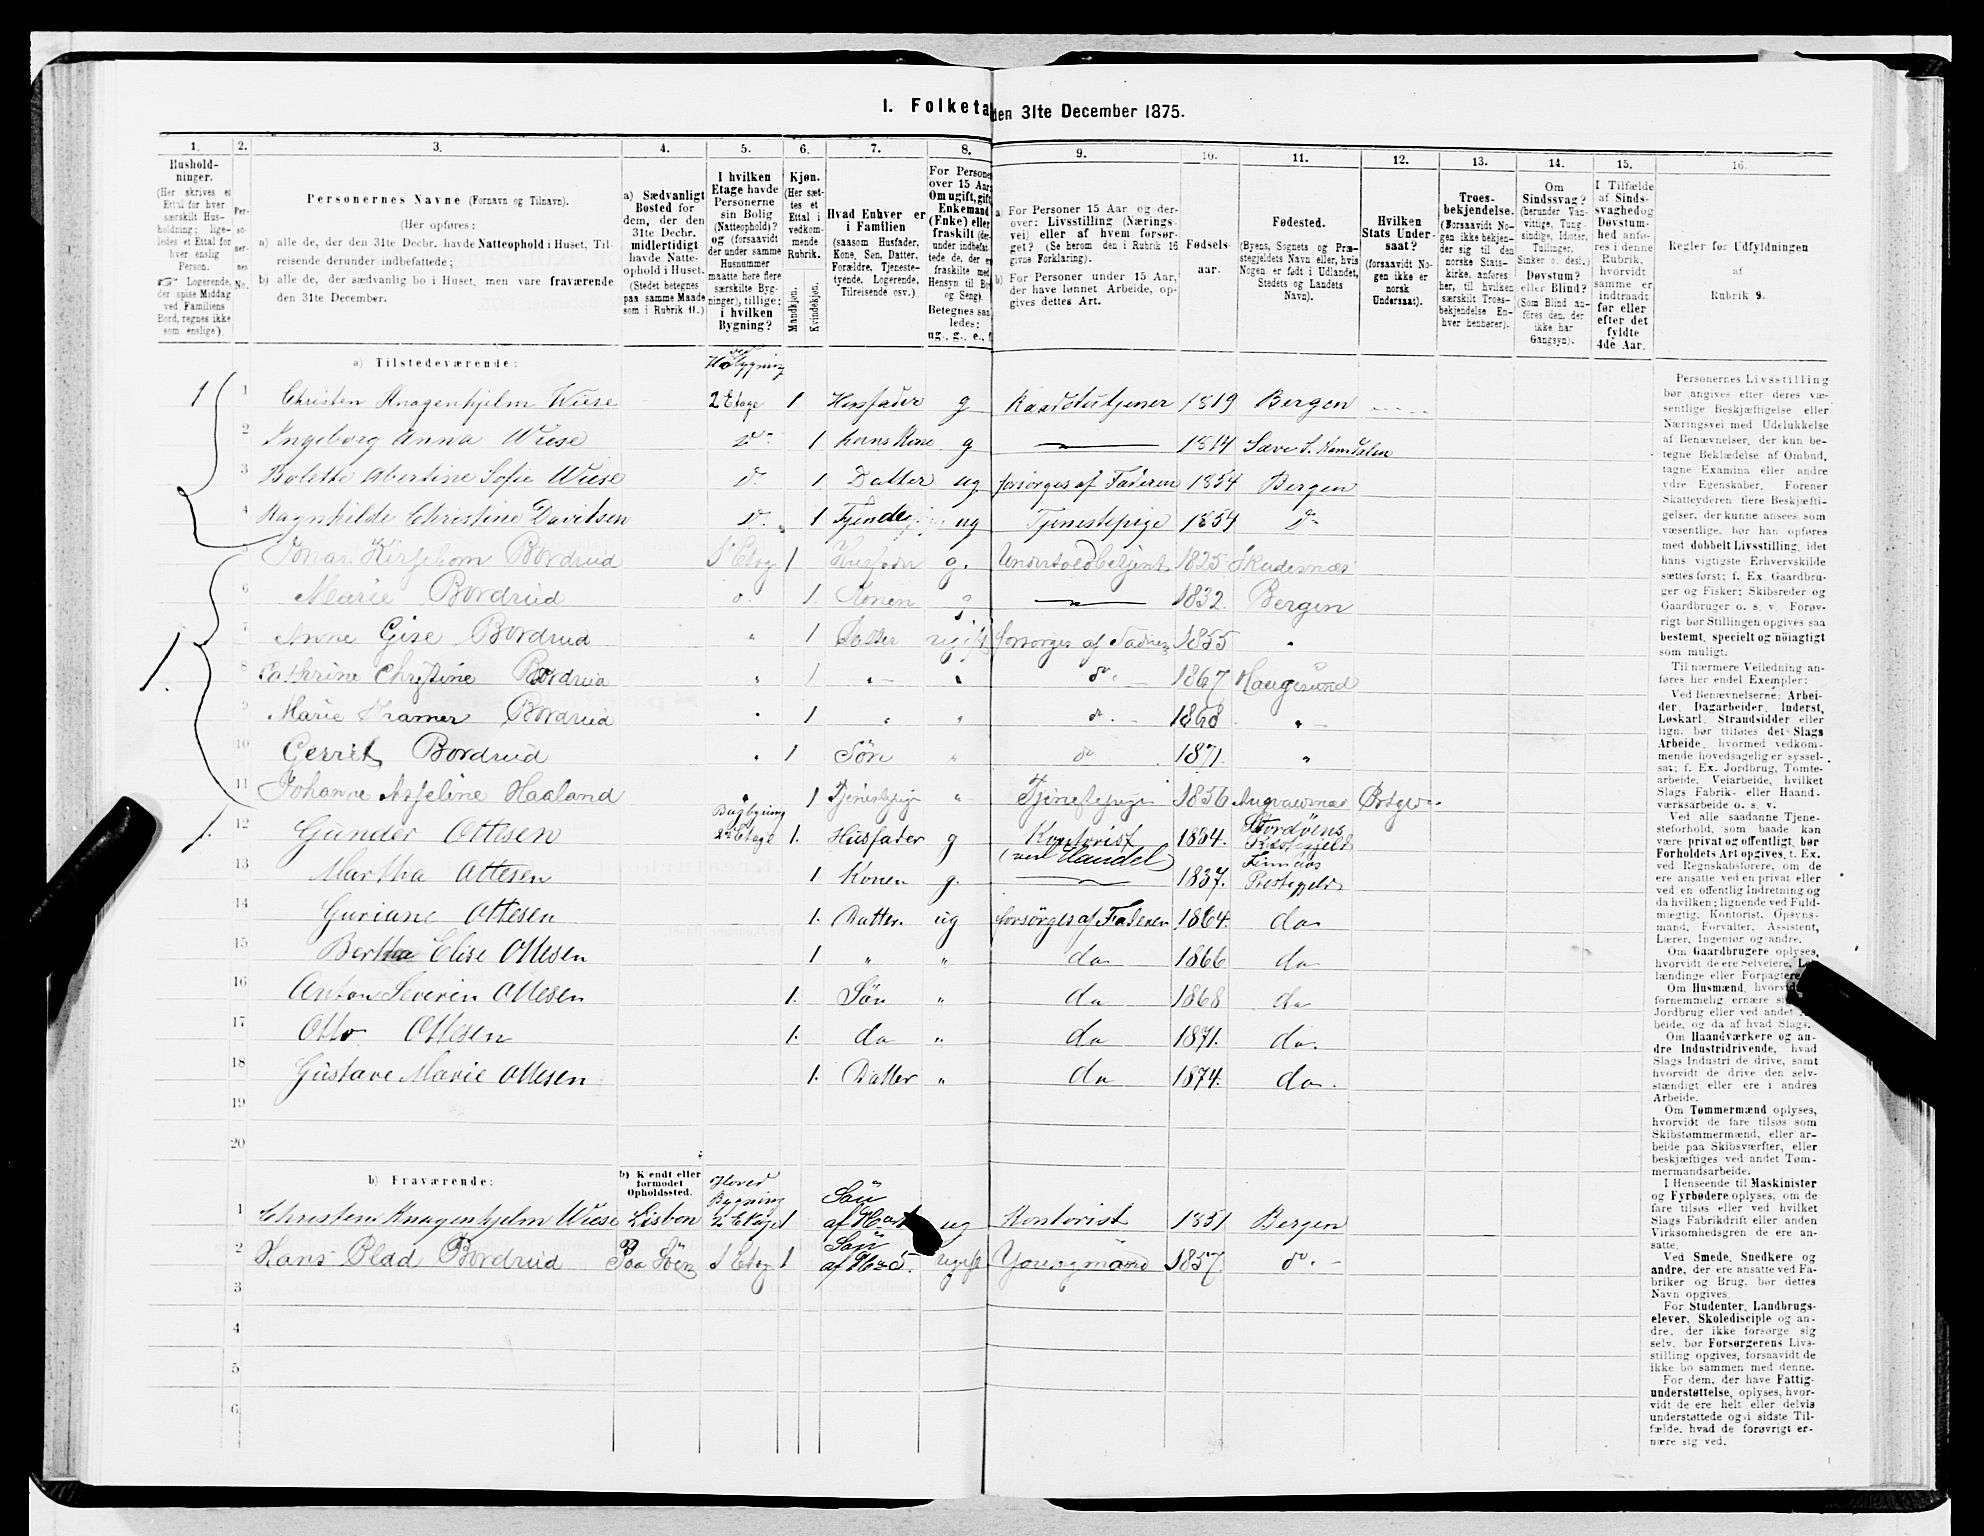 I. Folketa den 31te December 1875.
1. 2. 3. 4. 5. 6. 7. 8. 9. 10. 11. 12. 13. 14. 15. 16.
Hushold-
ninger.
(Her skrives et
Ettal for hver
særskilt Hus-
holdning; lige-
ledes et Ettal for
hver enslig
Person.
☞ Logerende,
der spise Middag
ved Familiens
Bord, regnes ikke
som enslige).
Per-
so-
ner-
nes
No.
Personernes Navne (Fornavn og Tilnavn).
(Her opføres:
a) alle de, der den 31te Decbr. havde Natteophold i Huset, Til-
reisende derunder indbefattede;
b) alle de, der sædvanlig bo i Huset, men vare fraværende
den 31te December.
a) Sædvanligt
Bosted for
dem, der den
31te Decbr.
midlertidigt
havde Natte-
ophold i Huset.
(Stedet betegnes
paa samme Maade
som i Rubrik 11.)
I hvilken
Etage havde
Personerne
sin Bolig
(Natteophold)?
og (forsaavidt
der under samme
Husnummer
maatte høre flere
særskilte Byg-
ninger), tillige:
i hvilken
Bygning?
Kjøn.
(Her sæt-
tes et
Ettal i
vedkom-
mende
Rubrik.
Mandkjøn.
Kvindekjøn.
Hvad Enhver er
i Familien
(saasom Husfader,
Kone, Søn, Datter,
Forældre, Tjeneste-
tyende, Logerende,
Tilreisende osv.)
For Persone
over 15 Aar
Om ugift, gift
Enkemand
(Enke) eller
fraskilt (der-
under indbefat-
tede de, der e
fraskilte med
Hensyn til Bo
og Seng).
Betegnes saa-
ledes:
ug., g., e., f.
a) For Personer 15 Aar og der-
over: Livsstilling (Nærings
vei) eller af hvem forsør-
get? (Se herom den i Rubrik 16
givne Forklaring).
b) For Personer under 15 Aar,
der have lønnet Arbeide, op-
gives dettes Art.
Fødsels-
aar.
Fødested.
(Byens, Sognets og Præ-
stegjeldets Navn eller, hvis
Nogen er født i Udlandet,
Stedets og Landets
Navn).
Hvilken
Stats Under-
saat?
(forsaavidt No-
gen ikke er
norsk
Undersaat).
Troes-
bekjendelse.
(Forsaavidt No-
gen ikke bekjen-
der sig til den
norske Stats-
kirke, anføres
her, til hvilken
særskilt Troes-
bekjendelse En-
hver henhører).
Om
Sindssvag?
(herunder Van-
vittige, Tung-
sindige, Idioter,
Tullinger,
Sinker o. desl.)
Døvstum?
eller Blind?
(Som Blind an-
føres den, der
ikke har
Gangsyn).
I Tilfælde
af Sinds-
svaghed og
Døvstum-
hed anfø-
res i denne
Rubrik,
hvorvidt
samme er
indtraadt
før eller
efter det
fyldte
4de Aar.
Regler for Udfyldningen
af
Rubrik 9.
a) Tilstedeværende:
Hovedbygning
1 1 Christen Knagenhjelm Wiese 2 Etage 1 Husfader g Raadstutjener 1819 Bergen
2 Ingeborg Anna Wiese D 1 hans Kone g 1814 Namdalen
3 Bolette Abertine Sofie Wiese D 1 Datter ug forsørges af Faderen 1854 Bergen
4 Ragnhilde Christine Davitsen D 1 ug Tjenestepige 1854 D
5 Jonas Bordrud 1 Etag 1 Husfader g. Undertoldbetjent 1825 Skudesnæs
1. 6 Marie Bordrud d. 1. Konen g 1832. Bergen
7 Anne Gise Bordrud " 1 Datter ugift forsørges af 1855 "
8 Cathrine Christine Bordrud " 1 " " do 1867 Haugesund
9 Marie Kramer Bordrud " 1 " " do. 1868 "
10 Gerrit Bordrud " 1 Søn " do 1871. "
11 Johanne Asseline Haaland " 1 Tjenestepige " Tjenestepige 1856
Bagbygning
1. 12 Gunder Ottesen 2 Etage 1. Husfader g Kontorist 1834. Stordøens Præstegjeld
(ved Handel)
13 Martha Ottesen 1 Konen g. 1837. Finnaas Prestegjeld
14 Guriane Ottesen 1. Datter. ug forsörges af Faderen 1864. do
15 Bertha Elise Ottesen 1 " " do 1866 do
16 Anton Severin Ottesen 1. Sön " do 1868 do
17 Otto Ottesen 1. do " do 1871. do.
18 Gustave Marie Ottesen 1. Datter " do 1874. do.
19
20
b) Fraværende:
b) Kjendt eller
formodet
Opholdssted.
Hoved
Bygning
1 Christen Knagenhjelm Wiese Lisbon 2 Etage 1 Søn af ug Kontorist 1851 Bergen
2 Hans Blad Bordrud Paa Søen 1 Etag 1 Søn af No 5. ugift Youngmand 1857. do.
3
4
5
6
Personernes Livsstilling
bør angives efter deres væ-
sentlige Beskjæftigelse eller
Næringsvei med Udelukkelse
af Benævnelser, der kun be-
tegne Beklædelse af Ombud,
tagne Examina eller andre
ydre Egenskaber. Forener
Skatteyderen flere Beskjæfti-
gelser, der kunne ansees som
væsentlige, bør han opføres
med dobbelt Livsstilling, idet
hans vigtigste Erhvervskilde
sættes først; f. Ex. Gaardbru-
ger og Fisker; Skibsreder og
Gaardbruger o. s. v. Forøv-
rigt bør Stillingen opgives saa
bestemt, specielt og nöiagtigt
som muligt.
Til nærmere Veiledning an-
føres her endel Exempler:
Ved Benævnelserne: Arbei-
der, Dagarbeider, Inderst,
Løskarl, Strandsidder eller
lign. bør tilføies det Slags
Arbeide, hvormed vedkom-
mende hovedsagelig er syssel-
sat; f. Ex. Jordbrug, Tomte-
arbeide, Veiarbeide, hvilket
Slags Fabrik- eller Haand-
værksarbeide o. s. v.
Ved alle saadanne Tjene-
steforhold, som baade kan
være privat og offentlig, bør
Forholdets Art opgives, f. Ex.
ved Regnskabsførere, om de
ere ansatte ved en privat eller
ved en offentlig Indretning og
da hvilken; lignende ved Fuld-
mægtig, Kontorist, Opsyns-
mand, Forvalter, Assistent,
Lærer, Ingeniør og andre.
Om Gaardbrugere oplyses,
hvorvidt de ere Selveiere, Lei-
lændinge eller Forpagtere
Om Husmænd, hvorvidt
fornemmelig ernære sig
Jordbrug eller ved andet Ar-
beide, og da af hvad Slags.
Om Haandværkere og an-
dre Industridrivende, hvad
Slags Industri de drive, samt
hvorvidt de drive den selv-
stændigt eller ere i andres
Arbeide.
Om Tømmermænd oplyses,
hvorvidt de fare tilsøs som
Skibstømmermænd, eller ar-
beide paa Skibsværfter, eller
beskjæftiges ved andet Tøm-
mermandsarbeide.
I Henseende til Maskinister
og Fyrbødere oplyses, om de
fare tilsøs eller ved hvilket
Slags Fabrikdrift eller anden
Virksomhedsgren de ere an-
satte.
Ved Smede, Snedkere og
andre, der ere ansatte ved Fa-
briker og Brug, bør dettes
Navn opgives.
For Studenter, Landbrugs-
elever, Skoledisciple og an-
dre, der ikke forsørge sig
selv, bør Forsørgerens Livs-
stilling opgives, forsaavidt de
ikke bo sammen med denne.
For dem, der have Fattig-
understøttelse, oplyses, hvor-
vidt de ere helt eller delvis
understøttede og i sidste Til-
fælde, hvad de forøvrigt er-
nære sig ved.